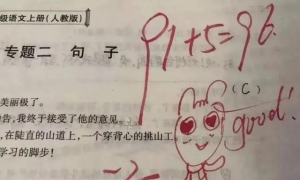 级语文上册(人教版)
91+5=96.
专题二 句 子
(C)
good!
美丽极了。
告,我终于接受了他的意见。
,在陡直的山道上,一个穿背心的挑山工
学习的脚步!
-2